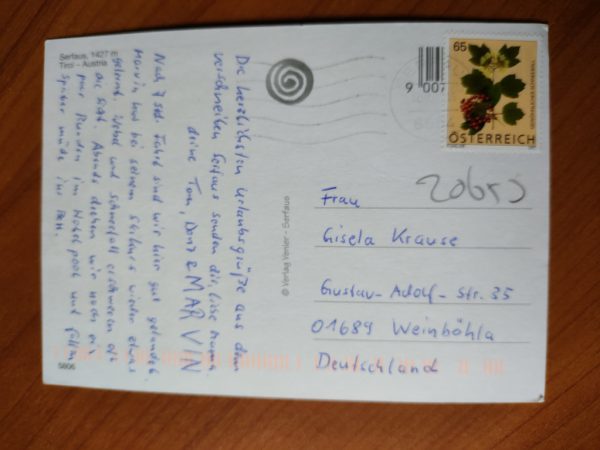 Serfaus, 1427 m
Tirol – Austria
Die herzlichsten Urlaubsgrüße aus dem
verschneiten Serfaus senden dir, liebe Mama
deine Tom, & MARVIN
Nach 7 std. Fahrt sind wir hier gut gelandet.
Marvin hat bei seinem Skikurs wieder etwas
gelernt. Nebel und Schneefall erschweren oft
die Sicht. Abends drehen wir noch ein
paar Runden im Hotelpool und fallen
später müde ins Bett.
5806
© Verlag Venier - Serfaus
9 007
65
ÖSTERREICH
Frau
Gisela Krause
Gustav-Adolf-Str. 35
01689 Weinböhla
Deutschland